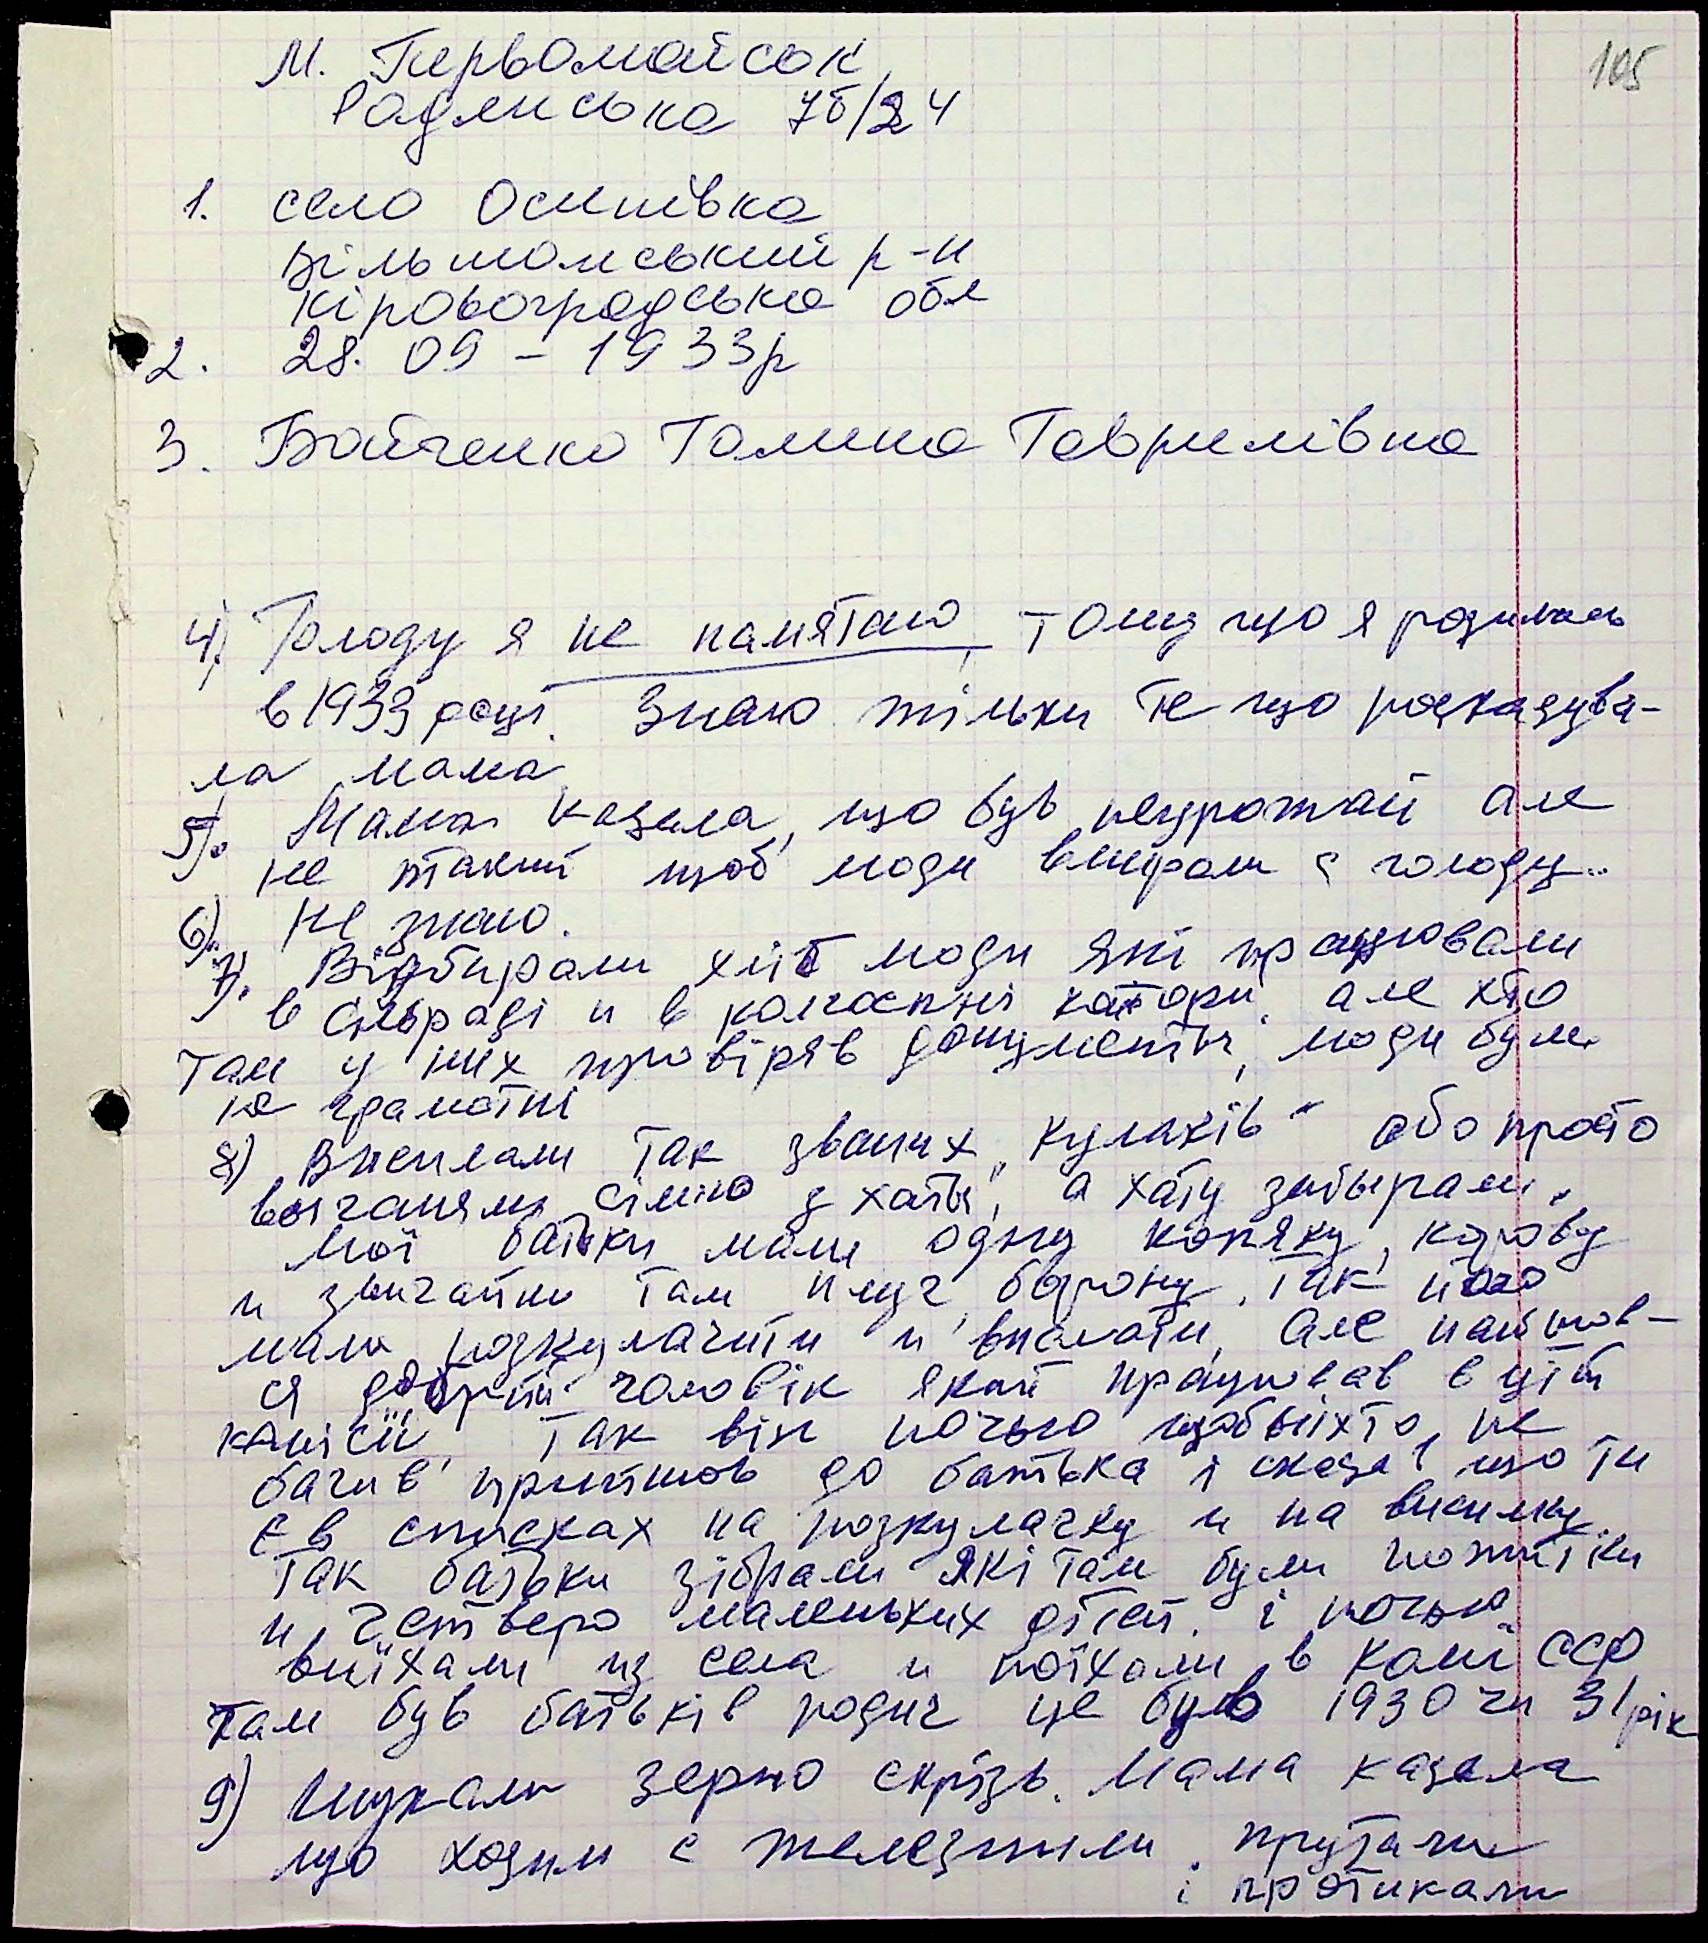 105
м. Первомайськ
Радянська 7б/24
1. село Осипівка
Вільшомський р-н
Кіровоградська обл
2. 28. 09 – 1933р
3. Бойченко Галина Гаврилівна
4) Голоду я не памятаю, тому що я родилась
в 1933 році. Знаю тільки те що росказува-
ла мама
5). Мама казала, що був неурожай але
не такий щоб люди вмирали с голоду..
6). Не знаю.
7). Відбирали хліб люди які працювали
в сільраді и в колгоспні конторі, але хто
там у них провіряв документы, люди були
не грамотні
8) Висилали так званих „кулаків" або просто
выганяли сімью з хаты, а хату забырали.
Мої батьки мали одну коняку, корову
и звичайно там плуг, борону, так його
мали розкулачити и висилати, але найшов-
ся добрий чоловік який працював в цій
камісіи, так він ночью щоб ніхто не
бачив прийшов до батька і сказав що ти
є в списках на розкулачку и на висилку.
Так батьки зібрали які там були пожитки
и четверо маленьких дітей, і ночью
виїхали из села и поїхали в Комі ССР
там був батьків родич це було 1930 чи 31 рік
9) Шукали зерно скрізь. Мама казала
що ходили с железними прутами
і протикали